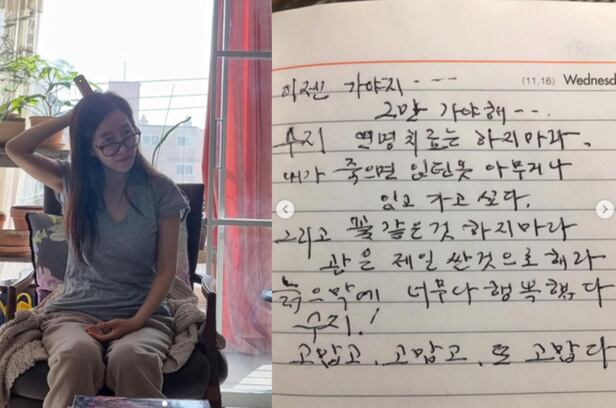 (11.16) Wednesd
이젠 가야지 - - -
그만 가야해 - - .
수지 연명치료는 하지마라.
내가 죽으면 입던옷 아무거나
입고 가고 싶다.
그리고 꽃 같은것 하지마라
관은 제일 싼것으로 해라
늙으막에 너무나 행복했다
수지!
고맙고, 고맙고, 또 고맙다